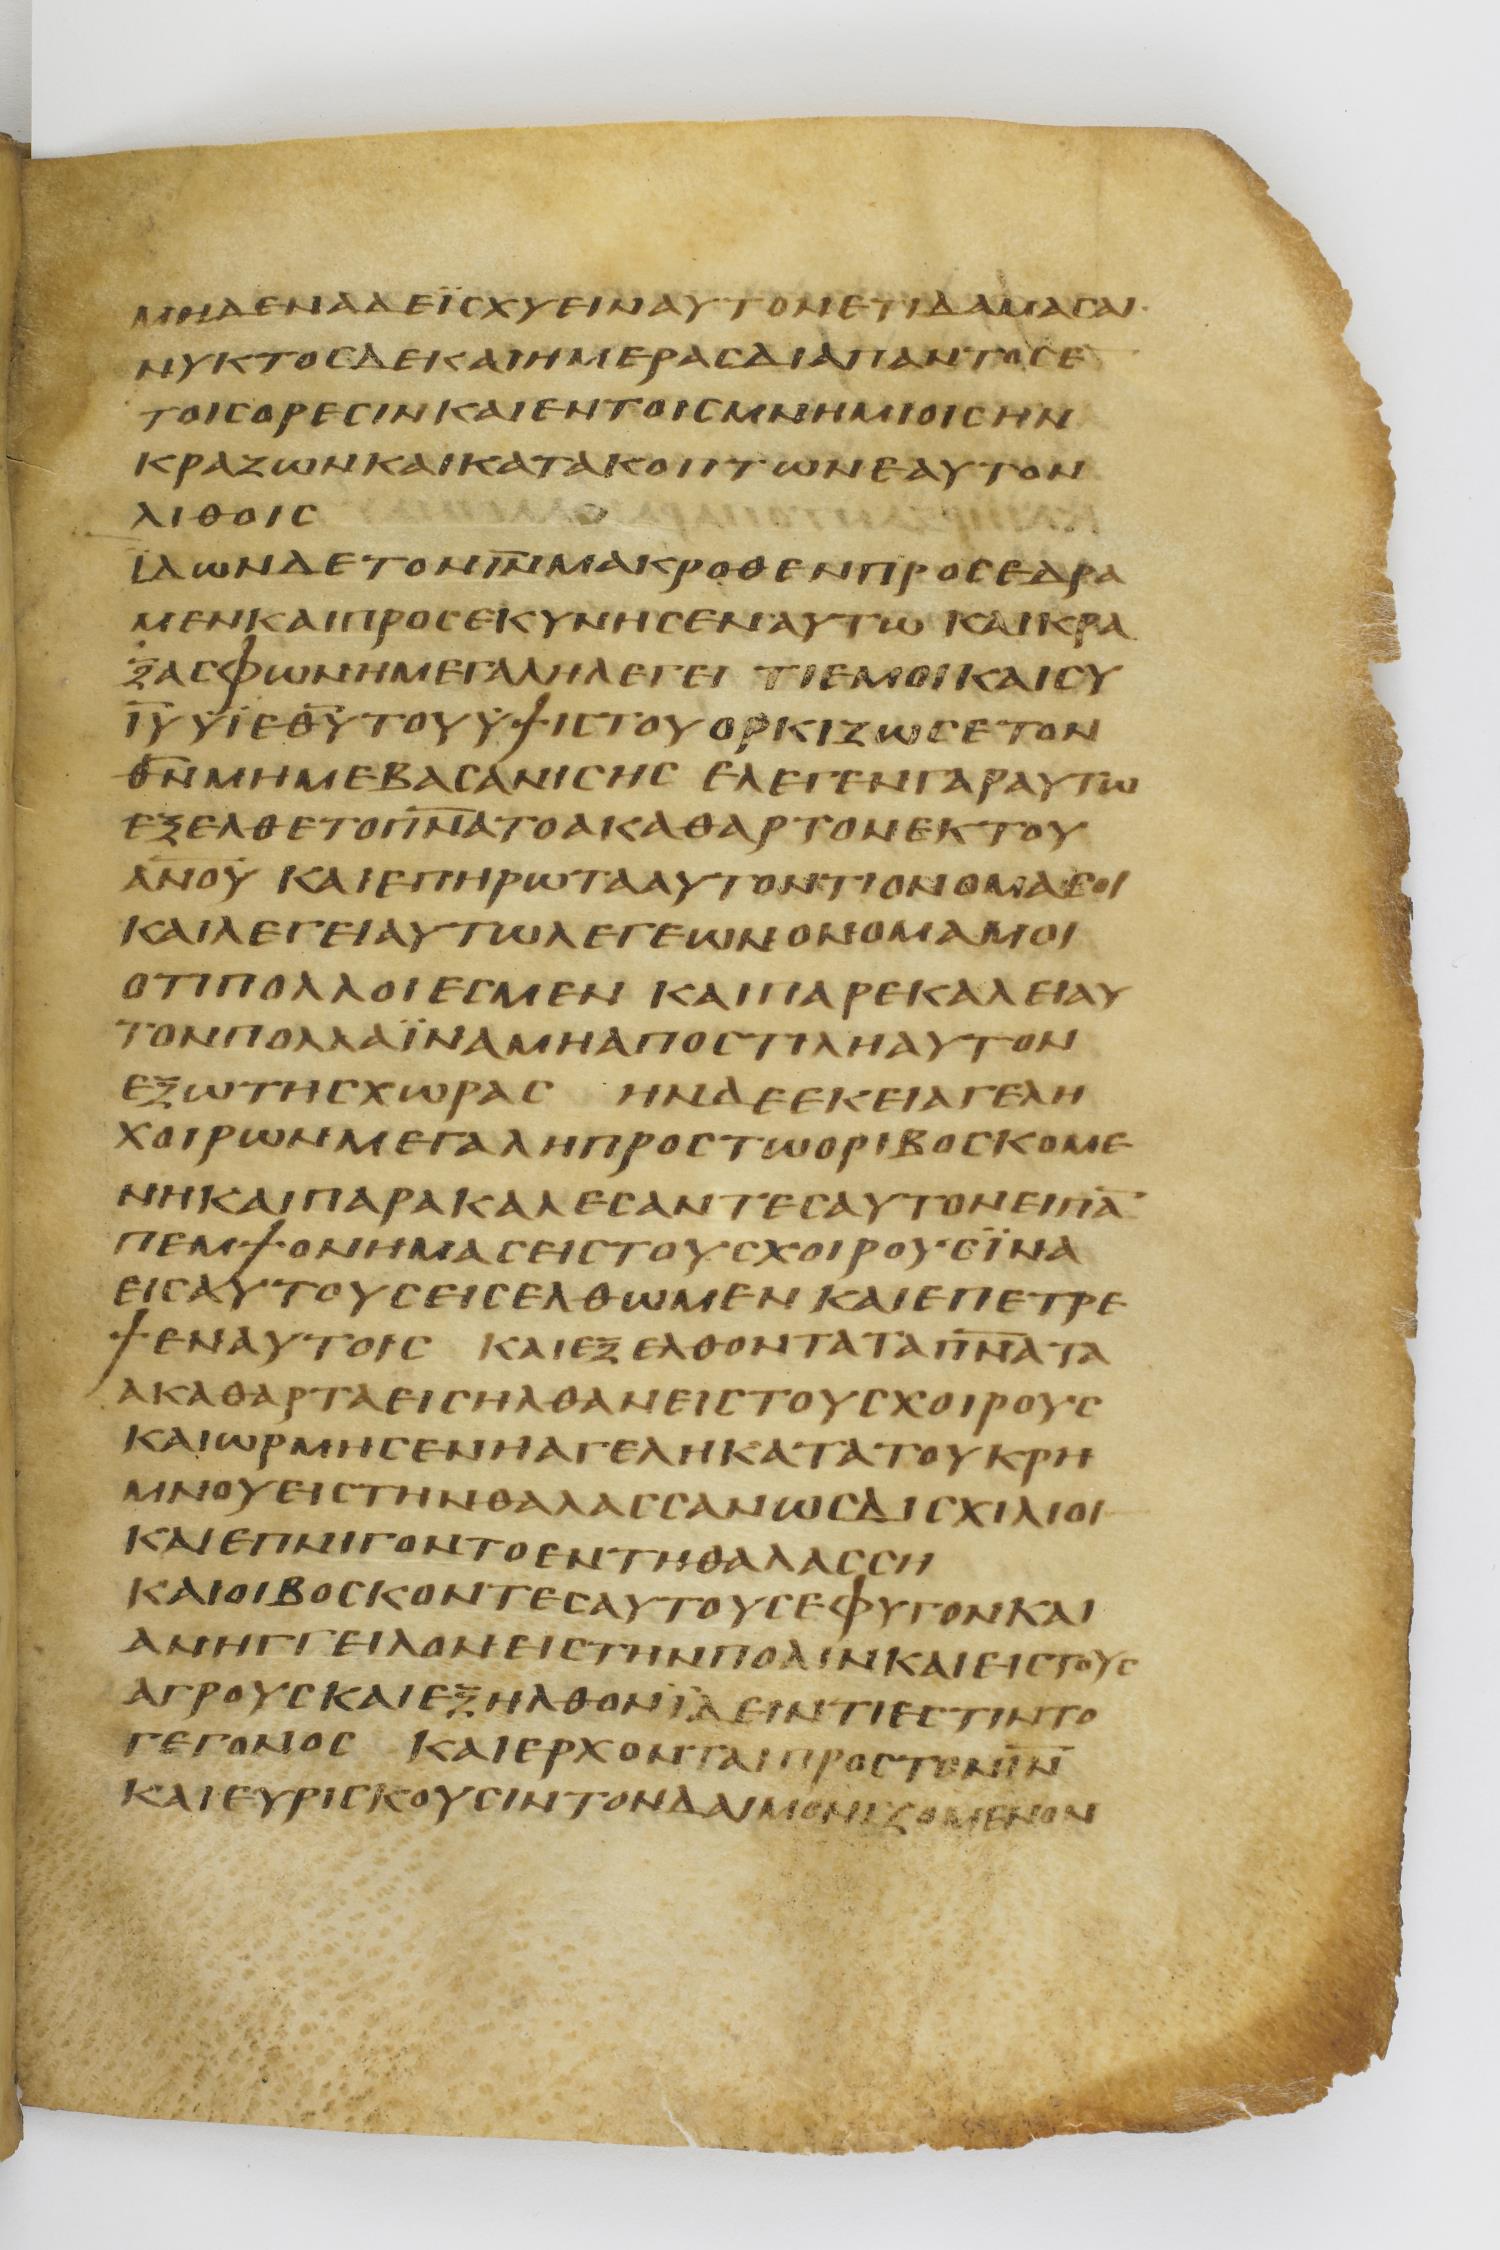 ΜΗΔΕΝΑΔΕΪСΧΥΕΙΝΑΥΤΟΝΕΤΙΔΑΜΑСΑΙ
ΝΥΚΤΟСΔΕΚΑΙΗΜΕΡΑСΔΙΑΠΑΝΤΟСΕ
ΤΟΙСΟΡΕСΙΝΚΑΙΕΝΤΟΙСΜΝΗΜΙΟΙСΗΝ
ΚΡΑΖΩΝΚΑΙΚΑΤΑΚΟΠΤΩΝΕΑΥΤΟΝ
ΛΙΘΟΙС
ΙΔΩΝΔΕΤΟΝΙ̅Ν̅ΜΑΚΡΟΘΕΝΠΡΟСΕΔΡΑ
ΜΕΝΚΑΙΠΡΟСΕΚΥΝΗСΕΝΑΥΤΩ ΚΑΙΚΡΑ
ΞΑСΦΩΝΗΜΕΓΑΛΗΛΕΓΕΙ ΤΙΕΜΟΙΚΑΙСΥ
Ι̅Υ̅ΥΪΕΘ̅Υ̅ΤΟΥΫΨΙСΤΟΥΟΡΚΙΖΩСΕΤΟΝ
Θ̅Ν̅ΜΗΜΕΒΑСΑΝΙСΗС ΕΛΕΓΕΝΓΑΡΑΥΤΩ
ΕΞΕΛΘΕΤΟΠ̅Ν̅Α̅ΤΟΑΚΑΘΑΡΤΟΝΕΚΤΟΥ
Α̅Ν̅Ο̅Υ̅ ΚΑΙΕΠΗΡΩΤΑΑΥΤΟΝΤΙΟΝΟΜΑСΟΙ
ΚΑΙΛΕΓΕΙΑΥΤΩΛΕΓΕΩΝΟΝΟΜΑΜΟΙ
ΟΤΙΠΟΛΛΟΙΕСΜΕΝ ΚΑΙΠΑΡΕΚΑΛΕΙΑΥ
ΤΟΝΠΟΛΛΑΪΝΑΜΗΑΠΟСΤΙΛΗΑΥΤΟΝ
ΕΞΩΤΗСΧΩΡΑС ΗΝΔΕΕΚΕΙΑΓΕΛΗ
ΧΟΙΡΩΝΜΕΓΑΛΗΠΡΟСΤΩΟΡΙΒΟСΚΟΜΕ
ΝΗΚΑΙΠΑΡΑΚΑΛΕСΑΝΤΕСΑΥΤΟΝΕΙΠΑ̅
ΠΕΜΨΟΝΗΜΑСΕΙСΤΟΥСΧΟΙΡΟΥСΪΝΑ
ΕΙСΑΥΤΟΥСΕΙСΕΛΘΩΜΕΝ ΚΑΙΕΠΕΤΡΕ
ΨΕΝΑΥΤΟΙС ΚΑΙΕΞΕΛΘΟΝΤΑΤΑΠ̅Ν̅Α̅ΤΑ
ΑΚΑΘΑΡΤΑΕΙСΗΛΘΑΝΕΙСΤΟΥСΧΟΙΡΟΥС
ΚΑΙΩΡΜΗСΕΝΗΑΓΕΛΗΚΑΤΑΤΟΥΚΡΗ
ΜΝΟΥΕΙСΤΗΝΘΑΛΑССΑΝΩСΔΙСΧΙΛΙΟΙ
ΚΑΙΕΠΝΙΓΟΝΤΟΕΝΤΗΘΑΛΑССΗ
ΚΑΙΟΙΒΟСΚΟΝΤΕСΑΥΤΟΥСΕΦΥΓΟΝΚΑΙ
ΑΝΗΓΓΕΙΛΟΝΕΙСΤΗΝΠΟΛΙΝΚΑΙΕΙСΤΟΥС
ΑΓΡΟΥСΚΑΙΕΞΗΛΘΟΝΪΔΕΙΝΤΙΕСΤΙΝΤΟ
ΓΕΓΟΝΟС ΚΑΙΕΡΧΟΝΤΑΙΠΡΟСΤΟΝΙ̅Ν̅
ΚΑΙΕΥΡΙСΚΟΥСΙΝΤΟΝΔΑΙΜΟΝΙΖΟΜΕΝΟΝ